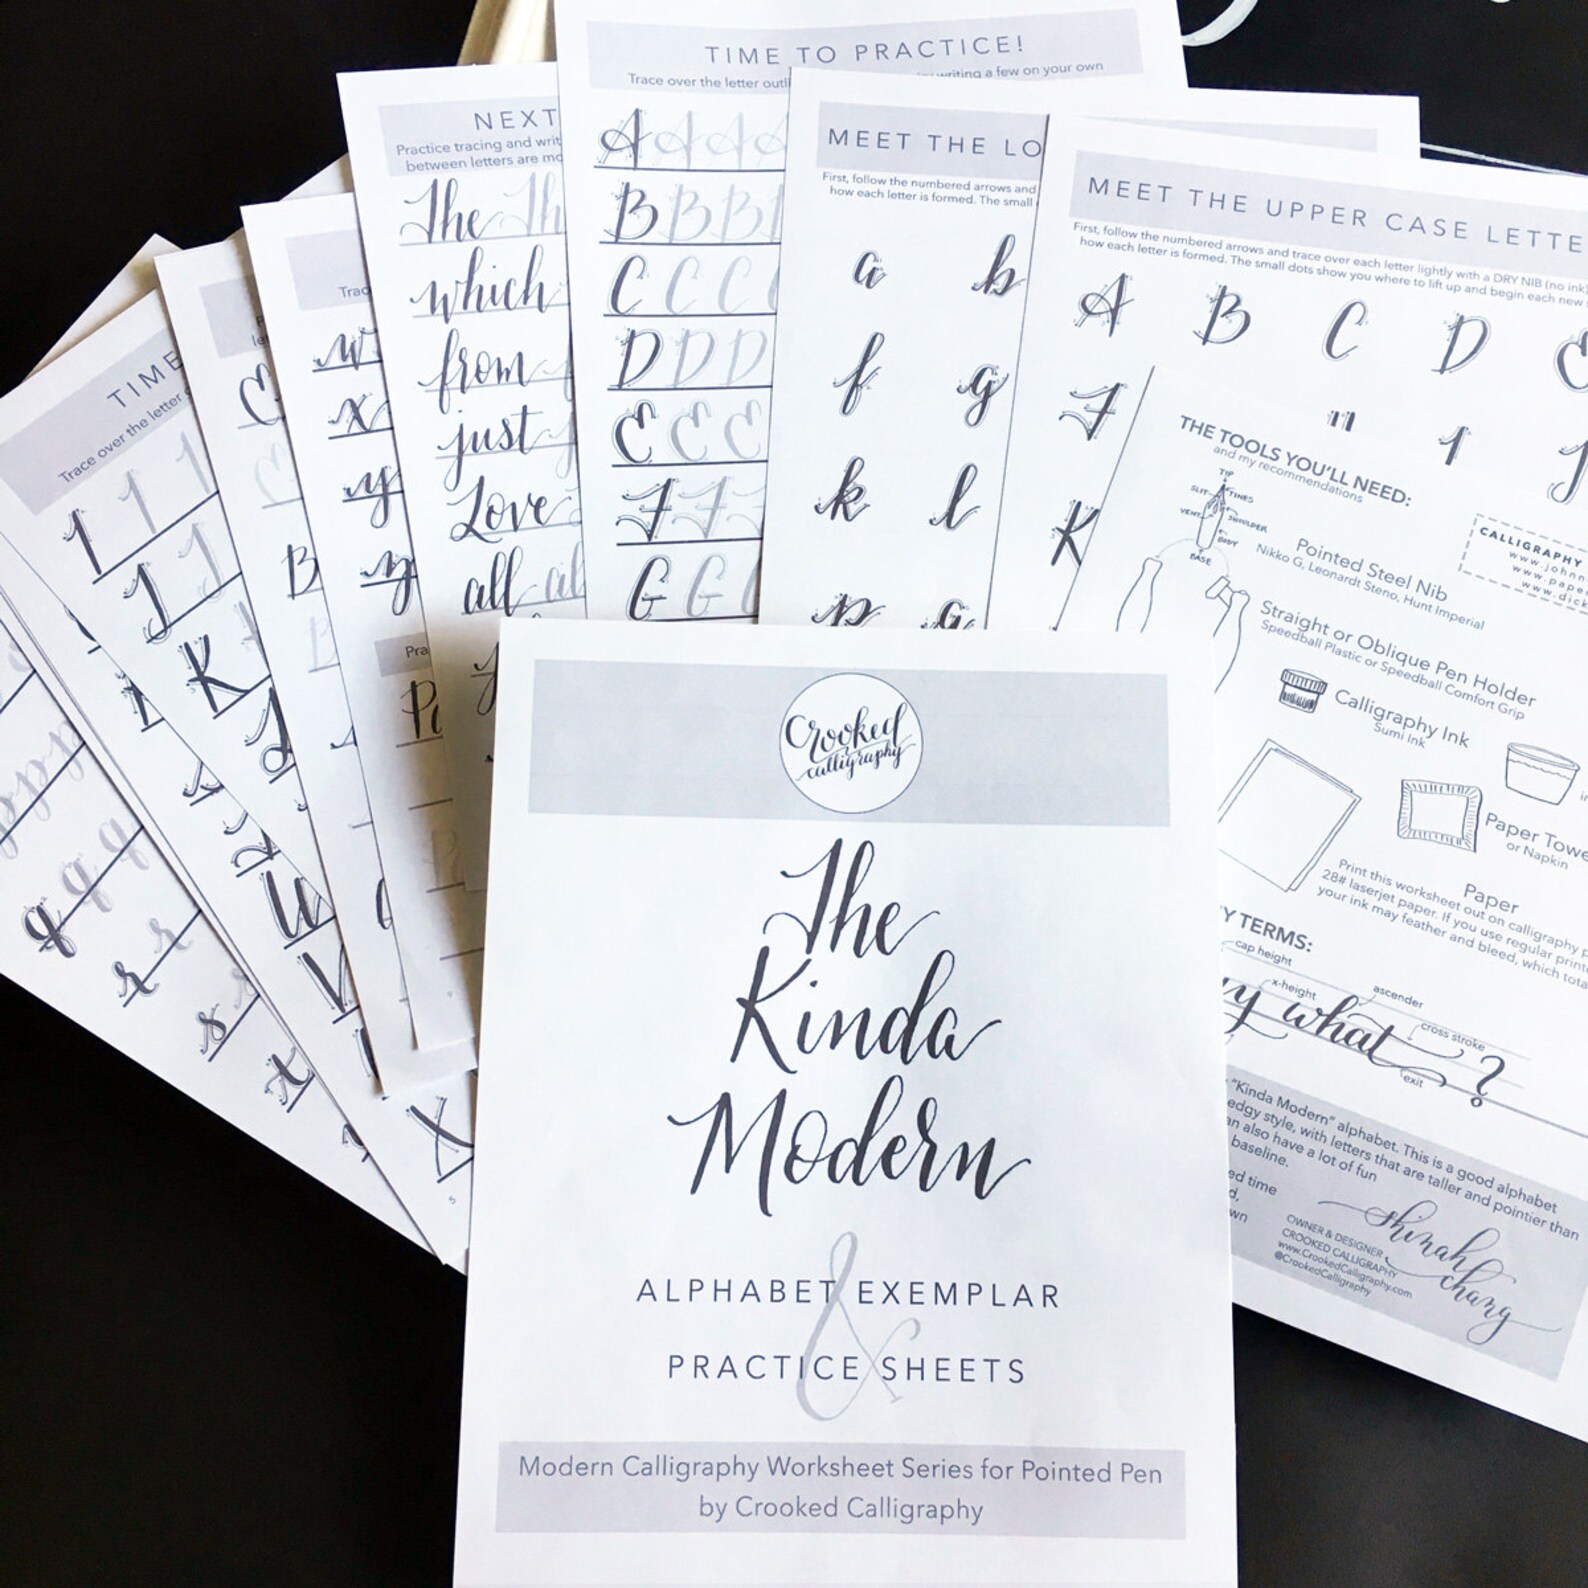 TIME TO PRACTICE!
Trace over the letter
writing a few on your own
A A A A
B B B B
C C C C
D D D D
E E E
F F F
G G G
NEXT
Practice tracing and
between letters are
The Th
which
from
just
Love
all al
MEET THE LO
First, follow the numbered arrows and
how each letter is formed. The small
a b
f g
k l
p q
MEET THE UPPER CASE LETTE
First, follow the numbered arrows and trace over each letter lightly with a DRY NIB (no ink)
how each letter is formed. The small dots show you where to lift up and begin each new
A B C D E
F
K
THE TOOLS YOU'LL NEED:
and my recommendations
TIP
SLIT
TINES
VENT
SHOULDER
BODY
BASE
Pointed Steel Nib
Nikko G, Leonardt Steno, Hunt Imperial
CALLIGRAPHY
www.johnn
www.pape
www.dick
Straight or Oblique Pen Holder
Speedball Plastic or Speedball Comfort Grip
Calligraphy Ink
Sumi Ink
Paper Towe
or Napkin
Paper
Print this worksheet out on calligraphy
28# laserjet paper. If you use regular
your ink may feather and bleed, which
Y TERMS:
cap height
x-height
ascender
cross stroke
what
?
exit
"Kinda Modern" alphabet. This is a good alphabet
edgy style, with letters that are taller and pointier than
an also have a lot of fun
baseline.
ed time
d,
wn
OWNER & DESIGNER
CROOKED CALLIGRAPHY
www.CrookedCalligraphy.com
@CrookedCalligraphy
Shinah
Chang
TIME
Trace over the letter
1 1 1
J J
K
L
w
x
y
z
E
B
q q q
r r
s s
t
U
V
X
5
Crooked
calligraphy
The
Kinda
Modern
ALPHABET EXEMPLAR
&
PRACTICE SHEETS
Modern Calligraphy Worksheet Series for Pointed Pen
by Crooked Calligraphy